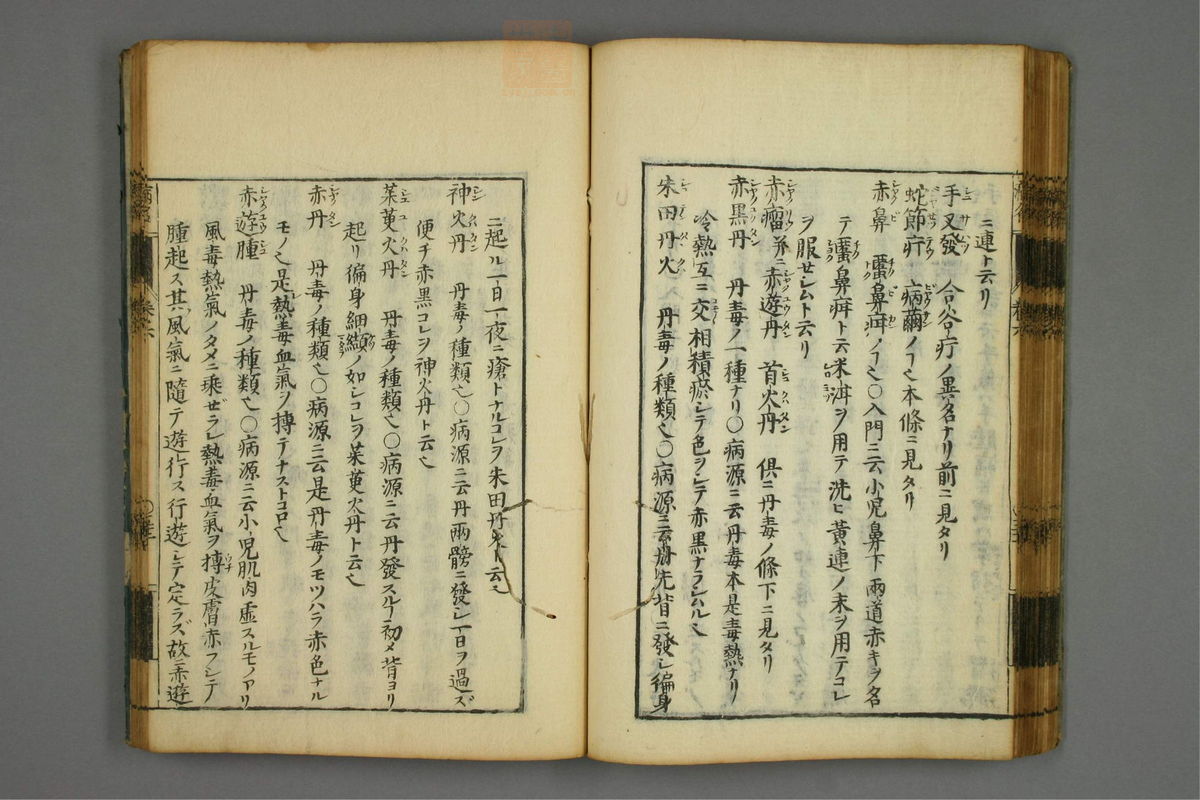 ニ連ト云リ
手叉發 合谷疔ノ異名ナリ前ニ見タリ
蛇節疔 病繭ノ󠄁ヿ也本條ニ見タリ
赤鼻 䘌鼻疳ノヿ也〇入門ニ云小兒鼻下兩道赤キヲ名
テ䘌鼻疳ト云米泔ヲ用テ洗ヒ黃連ノ末ヲ用テコレ
ヲ服セシムト云リ
赤瘤 并ニ赤遊丹 首火丹 俱ニ丹毒ノ條下ニ見タリ
赤黑丹 丹毒ノ一種ナリ〇病源ニ云丹毒本是毒熱ナリ
冷熱互ニ交相積瘀シテ色ヲシテ赤黑ナラシムル也
朱田丹火 丹毒ノ種類也〇病源ニ云丹先背ニ發シ徧身
ニ起ル一日一夜ニ瘡トナルコレヲ朱田丹火ト云也
神火丹 丹毒ノ種類也〇病源ニ云丹兩髈ニ發シ一日ヲ過ズ
便チ赤黑コレヲ神火丹ト云也
茱萸火丹 丹毒ノ種類也〇病源ニ云丹發スルヿ初メ背ヨリ
起リ徧身細纈ノ如シコレヲ茱萸火丹ト云也
赤丹 丹毒ノ種類也〇病源ニ云是丹毒ノモツハラ赤色ナル
モノ也是熱毒血氣ヲ搏テナストコロ也
赤遊腫 丹毒ノ種類也〇病源ニ云小兒肌肉虛スルモノアリ
風毒熱氣ノタメニ乘ゼラレ熱毒血氣ヲ搏皮膚赤フシテ
腫起ス其風氣ニ隨テ遊行ス行遊シテ定ラズ故ニ赤遊